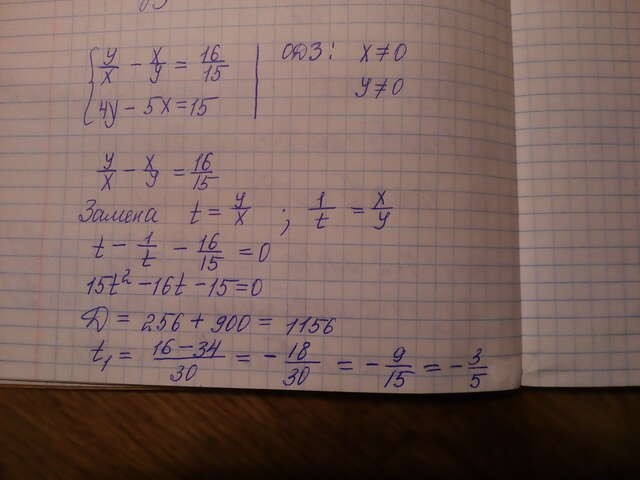 y/x - x/y = 16/15 | ОДЗ: x ≠ 0
4y - 5x = 15 | y ≠ 0
y/x - x/y = 16/15
Замена t = y/x ; 1/t = x/y
t - 1/t - 16/15 = 0
15t² - 16t - 15 = 0
D = 256 + 900 = 1156
t₁ = (16 - 34)/30 = - 18/30 = - 9/15 = - 3/5